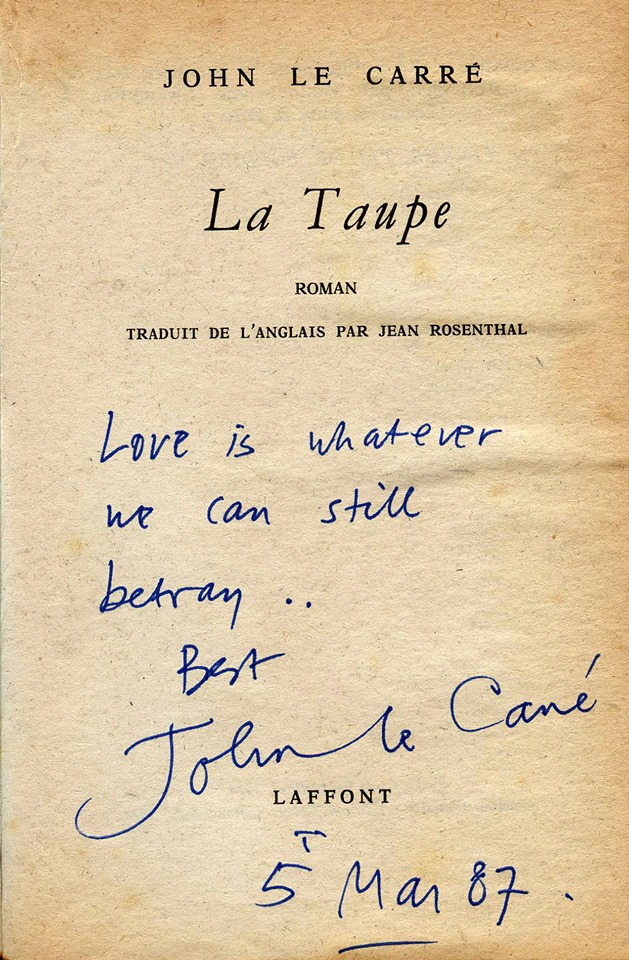 JOHN LE CARRÉ
La Taupe
ROMAN
TRADUIT DE L'ANGLAIS PAR JEAN ROSENTHAL
Love is whatever
we can still
betray ..
Best
John le Carré
LAFFONT
5 Mar 87.